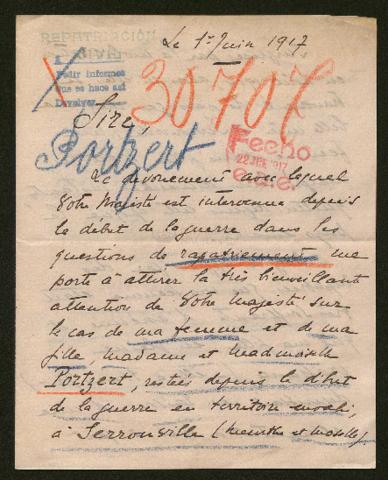 REPATRIACIÓN
Le 1er Juin 1917
Pedir informes
que se hace así
Devolver
30707
Sire,
Portzert
Fecho
22 JUN 1917
Le dévouement avec lequel
Votre Majesté est intervenue depuis
le début de la guerre dans les
questions de rapatriement me
porte à attirer la très bienveillante
attention de Votre Majesté sur
le cas de ma femme et de ma
fille, Madame et Mademoiselle
Portzert, restées depuis le début
de la guerre en territoire envahi,
à Serrouville (Meurthe et Moselle).